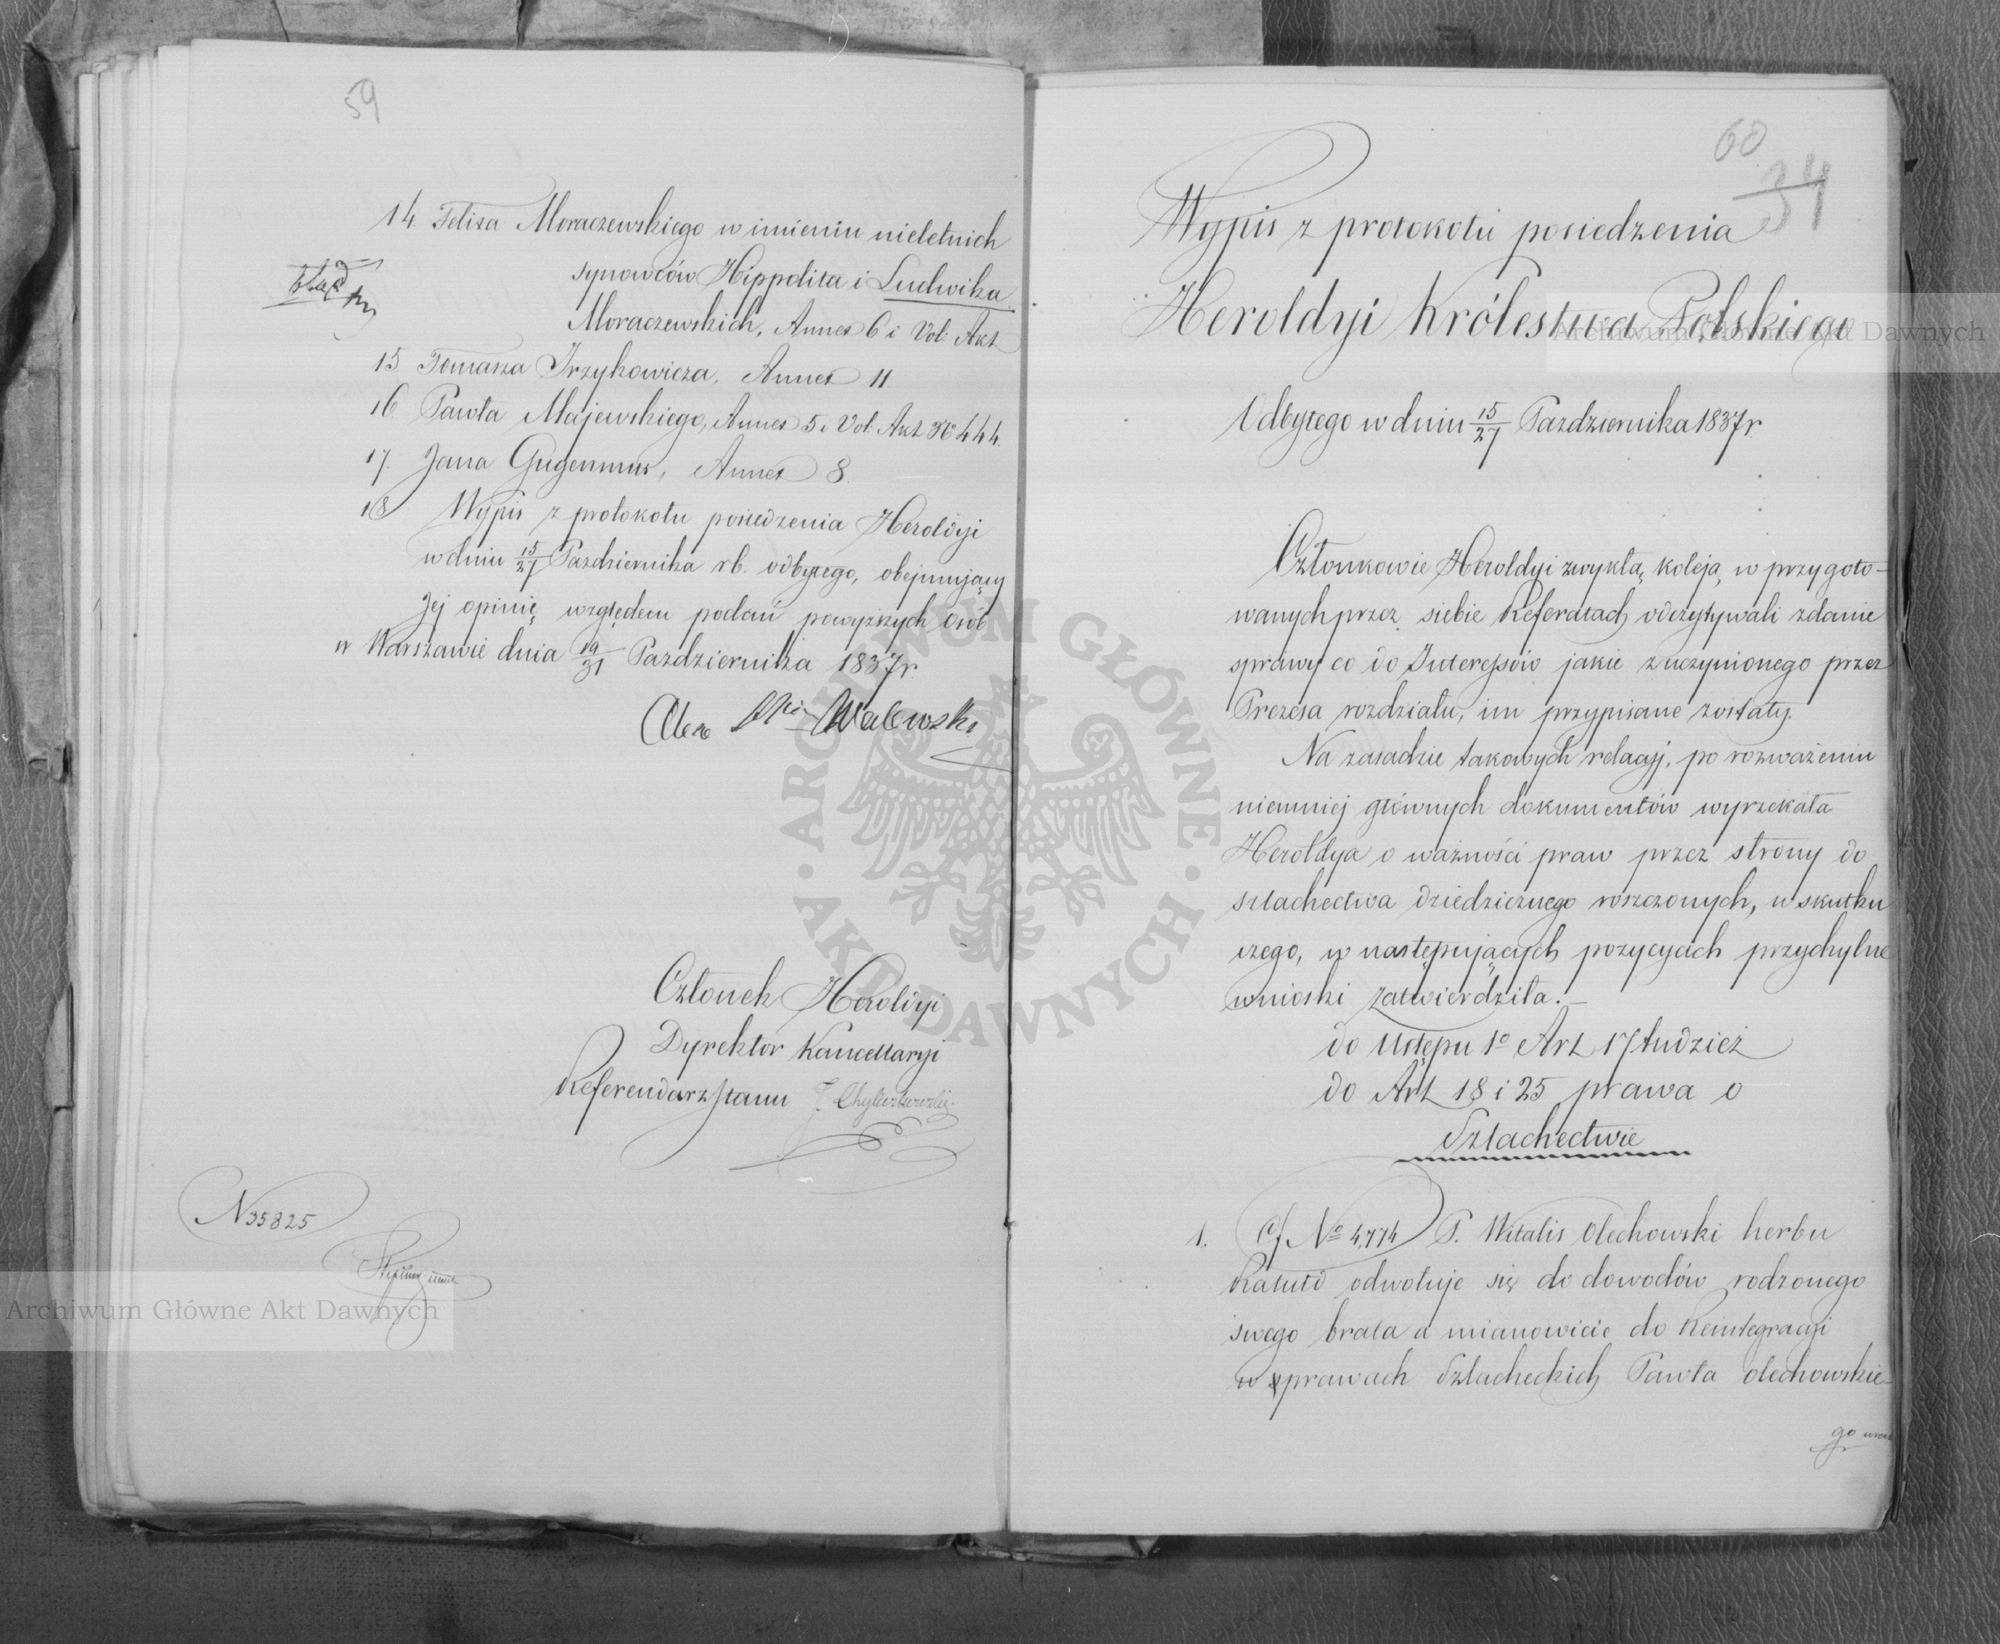 59
14. Felixa Moraczewskiego w imieniu nieletnich
synowców Hippolita i Ludwika
Moraczewskich, Annex 6 i Vol: Akt
15 Tomasza Irzykowicza, Annex 11.
16 Pawła Majewskiego, Annex 5 i Vol: Akt No 444.
17. Jana Gugenmus, Annex 8.
18 Wypis z protokołu posiedzenia Heroldyi
w dniu 15/27 Pazdziernika rb. odbytego, obejmujący
Jej opinię względem podań powyższych osób
w Warszawie dnia 19/31 Pazdziernika 1837 r.
Alex Walewski
Członek Heroldyi
Dyrektor Kancellaryi
Referendarz Stanu
N 35825
60
34
Wypis z protokołu posiedzenia
Heroldyi Królestwa Polskiego
Odbytego w dniu 15/27 Pazdziernika 1837 r.
Członkowie Heroldyi zwykłą koleją, w przygoto-
wanych przez siebie Referatach odczytywali zdanie
sprawy co do Interessów jakie z uczynionego przez
Prezesa rozdziału, im przypisane zostały.
Na zasadzie takowych relacyj, po rozważeniu
niemniej głównych dokumentów wyrzekała
Heroldya o ważności praw przez strony do
szlachectwa dziedzicznego roszczonych, w skutku
czego, w następujących pozycyach przychylne
wnioski zatwierdziła.—
do Ustępu 1o Art 17 tudzież
do Art 18 i 25 prawa o
Szlachectwie
1. Cf No 4,774 P. Witalis Olechowski herbu
Radwan odwołuje się do dowodów rodzonego
swego brata a mianowicie do Reintegracyi
w prawach Szlacheckich Pawła Olechowskie-
go
Archiwum Główne Akt Dawnych
Archiwum Główne Akt Dawnych
ARCHIWUM GŁÓWNE · AKT DAWNYCH ·